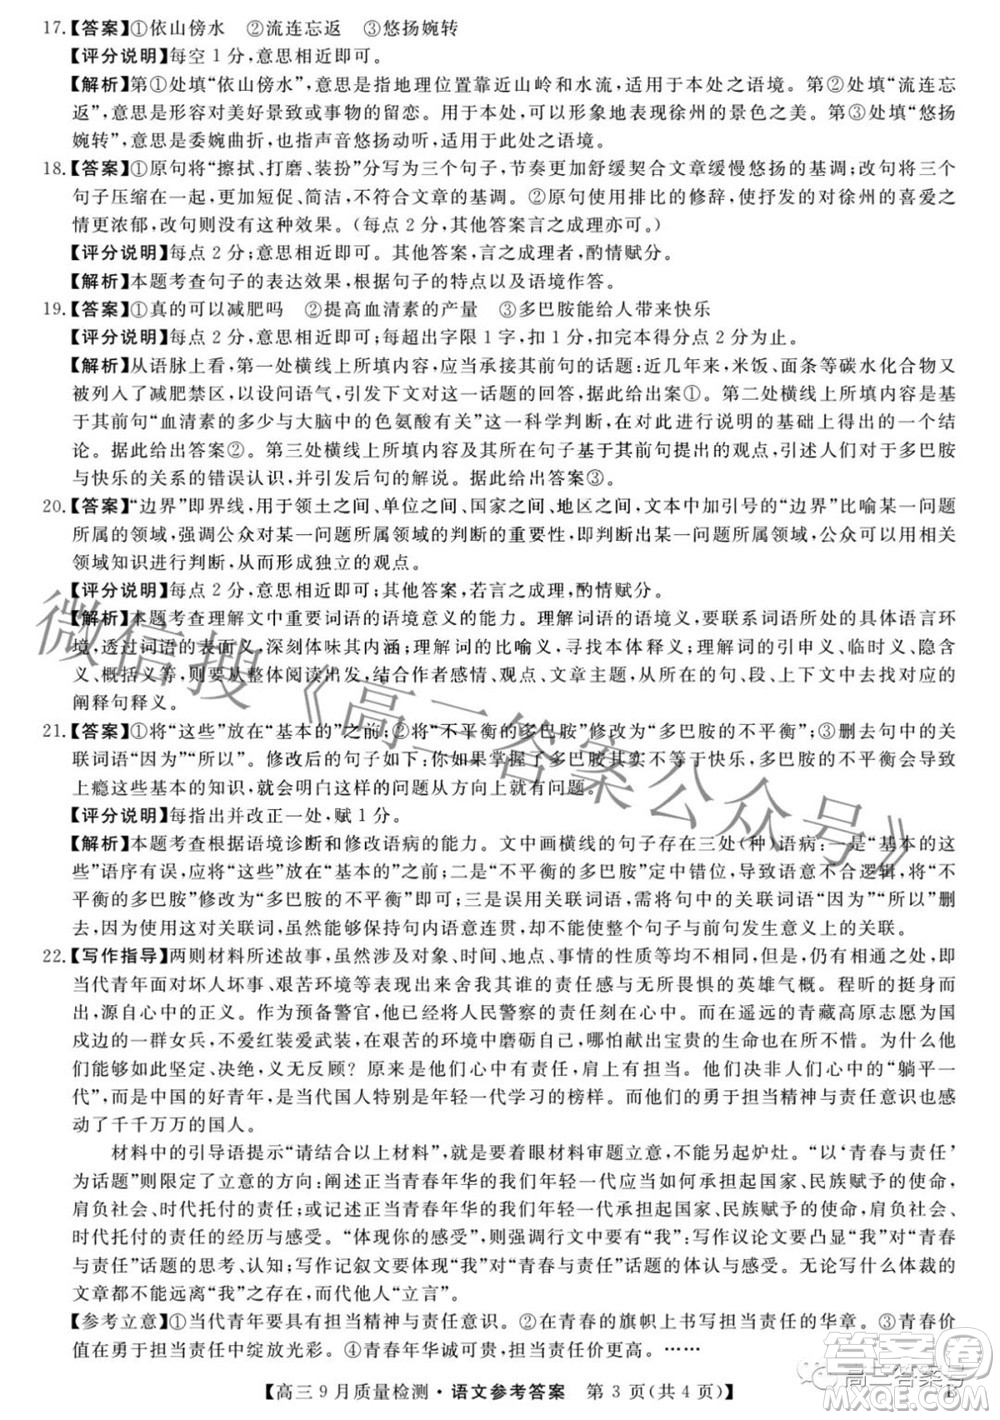 17.【答案】①依山傍水　②流连忘返　③悠扬婉转
【评分说明】每空1分,意思相近即可。
【解析】第①处填“依山傍水”,意思是指地理位置靠近山岭和水流,适用于本处之语境。第②处填“流连忘
返”,意思是形容对美好景致或事物的留恋。用于本处,可以形象地表现徐州的景色之美。第③处填“悠扬
婉转”,意思是委婉曲折,也指声音悠扬动听,适用于此处之语境。
18.【答案】①原句将“擦拭、打磨、装扮”分写为三个句子,节奏更加舒缓契合文章缓慢悠扬的基调;改句将三个
句子压缩在一起,更加短促、简洁,不符合文章的基调。②原句使用排比的修辞,使抒发的对徐州的喜爱之
情更浓郁,改句则没有这种效果。(每点2分,其他答案言之成理亦可。)
【评分说明】每点2分;意思相近即可。其他答案,言之成理者,酌情赋分。
【解析】本题考查句子的表达效果,根据句子的特点以及语境作答。
19.【答案】①真的可以减肥吗　②提高血清素的产量　③多巴胺能给人带来快乐
【评分说明】每点2分,意思相近即可;每超出字限1字,扣1分,扣完本得分点2分为止。
【解析】从语脉上看,第一处横线上所填内容,应承接其前句的话题:近几年来,米饭、面条等碳水化合物又
被列入了减肥禁区,以设问语气,引发下文对这一话题的回答,据此给出答案①。第二处横线上所填内容,
是基于其前句“血清素的多少与大脑中的色氨酸有关”这一科学判断,对此进行说明的基础上得出的一个结
论。据此给出答案②。第三处横线上所填内容与其所在句子基于具体实验提出的观点,否定了多巴胺
与快乐的关系的错误认识,并引发后句的解说。据此给出答案③。
20.【答案】“边界”即界线,用于领土之间、单位之间、国家之间、地区之间,文本中加引号的“边界”比喻某一问题
所属的领域,强调公众对某一问题所属领域的判断的重要性,即判断某一问题所属的领域,公众可以以相关
领域知识进行判断,从而形成独立的观点。
【评分说明】每点2分,意思相近即可;其他答案,若言之成理,酌情赋分。
【解析】本题考查理解文中重要词语的语境意义的能力。理解词语的语境义,要联系词语所在的具体语言环
境,透过词语的表面义,深刻体味其内涵;理解词语的比喻义,寻找本体释义;理解词的引申义、临时义、涵盖
义、概括义等,则可从整体阅读出发,结合作者感情、观点、文章主题,从所在句、段、上下文中去找对应的
阐释句释义。
21.【答案】①将“这些”放在“基本的”之前;②将“不平衡的多巴胺”修改为“多巴胺的不平衡”;③删去句中的关
联词语“因为”“所以”。修改后的句子如下:你如果掌握了多巴胺的不平衡超过关重要,多巴胺的不平衡会导致
上瘾这些基本的知识,就会明白这样的问题从方向上就有问题。
【评分说明】每指出并改正一处,赋1分。
【解析】本题考查根据语境诊断和修改语病的能力。文中画横线的句子存在三处(种)语病:一是“基本的这
些”语序有误,应将“这些”放在“基本的”之前;二是“不平衡的多巴胺”定中错位,导致语意不合逻辑,将“不平
衡的多巴胺”修改为“多巴胺的不平衡”;三是误用关联词语,需将句中的关联词语“因为”“所以”删
去,改为后句的对应关联词,却不能实现前后句意思的有机关联。
22.【写作指导】两则材料所述故事,虽然涉及对象、时间、事情的性质等均不相同,但相通之处,均表现了
当代青年面对坏人坏事、艰苦环境等表现出来的舍我其谁的责任感与无所畏惧的英雄气概。程昕的挺身
而出,源自心中的正义感。作为预备警官,他已经将人民警察的责任刻在心中。在遥远的青藏高原志愿为国
戍边的一群女兵,不爱红装爱武装,在艰苦的环境中磨砺自己,哪怕献出宝贵的生命也在所不惜。为什么
她们能够如此坚定、决绝,一往直前?原来她们心中有责任,肩上有担当。她们决非人们心中的“躺平一
代”,而是中国的好青年,是当代国人特别是年轻一代学习的榜样。她们的担当精神与责任意识也感
动了千千万万的国人。
材料中的引导语提示“请结合以上材料”,就是要着眼材料审题立意,而不能另起炉灶。“以‘青春与责任’
为话题”,则限定了立意的方向:阐述正当青春年华的年轻一代应当如何承担起国家、民族赋予的使命,
肩负社会、时代托付的责任;或描述正当青春年华的年轻一代如何承担起国家、民族赋予的使命,肩负社会、
时代托付的责任的经历与感受。“体现你的感受与思考”提示写作中要有“我”:写作议论文要凸显“我”对“青春
与责任”话题的思考、认知;写作记叙文要体现“我”对“青春与责任”话题的体认与感受。无论写什么体裁的
文章都不能脱离“我”的存在,即不能代他人“立言”。
【参考立意】①当代青年要有担当精神与责任意识。②在青春的旗帜上书写担当责任的华章。③青春价
值在勇于担当责任中绽放光彩。④青春年华诚可贵,担当责任价更高。……
【高三9月质量检测·语文参考答案　第3页(共4页)】
微信搜《高三答案公众号》
答案圈
高三答案号